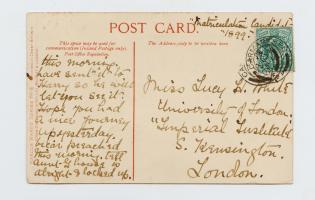 "Matriculation Candidate
1899."
POST CARD.
This space may be used for
communication (Inland Postage only).
Post Office Regulation.
The Address only to be written here
this morning
have sent it to
Harry so he will
let you see it
Hope you had
a nice journey
up yesterday
this morning, till
aunt's house is
alright & locked up.
Miss Lucy H. White
University of London.
"Imperial Institute
S. Kensington.
London.